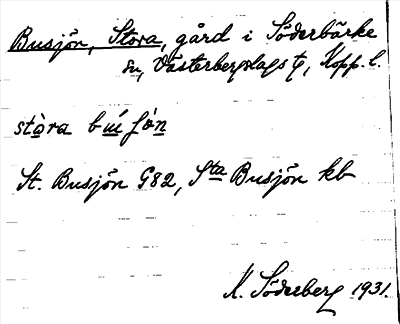 Busjön, Stora, gård i Söderbärke
sn, Västerbergslags tg, Kopp. l.
stòra bu̇́ fȯn
St. Busjön G82, Sta Busjön kb
K. Söderberg 1931.